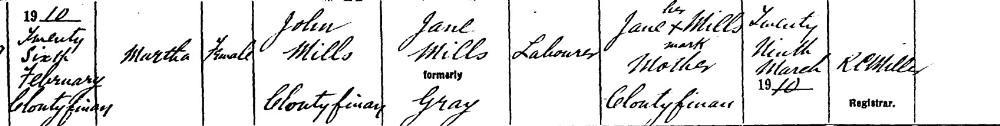 1910
Twenty
Sixth
February
Cloutyfinan
Martha
Female
John
Mills
Cloutyfinan
Jane
Mills
formerly
Gray
Labourer
her
Jane x Mills
mark
Mother
Cloutyfinan
Twenty
Ninth
March
1910
R C Miller
Registrar.